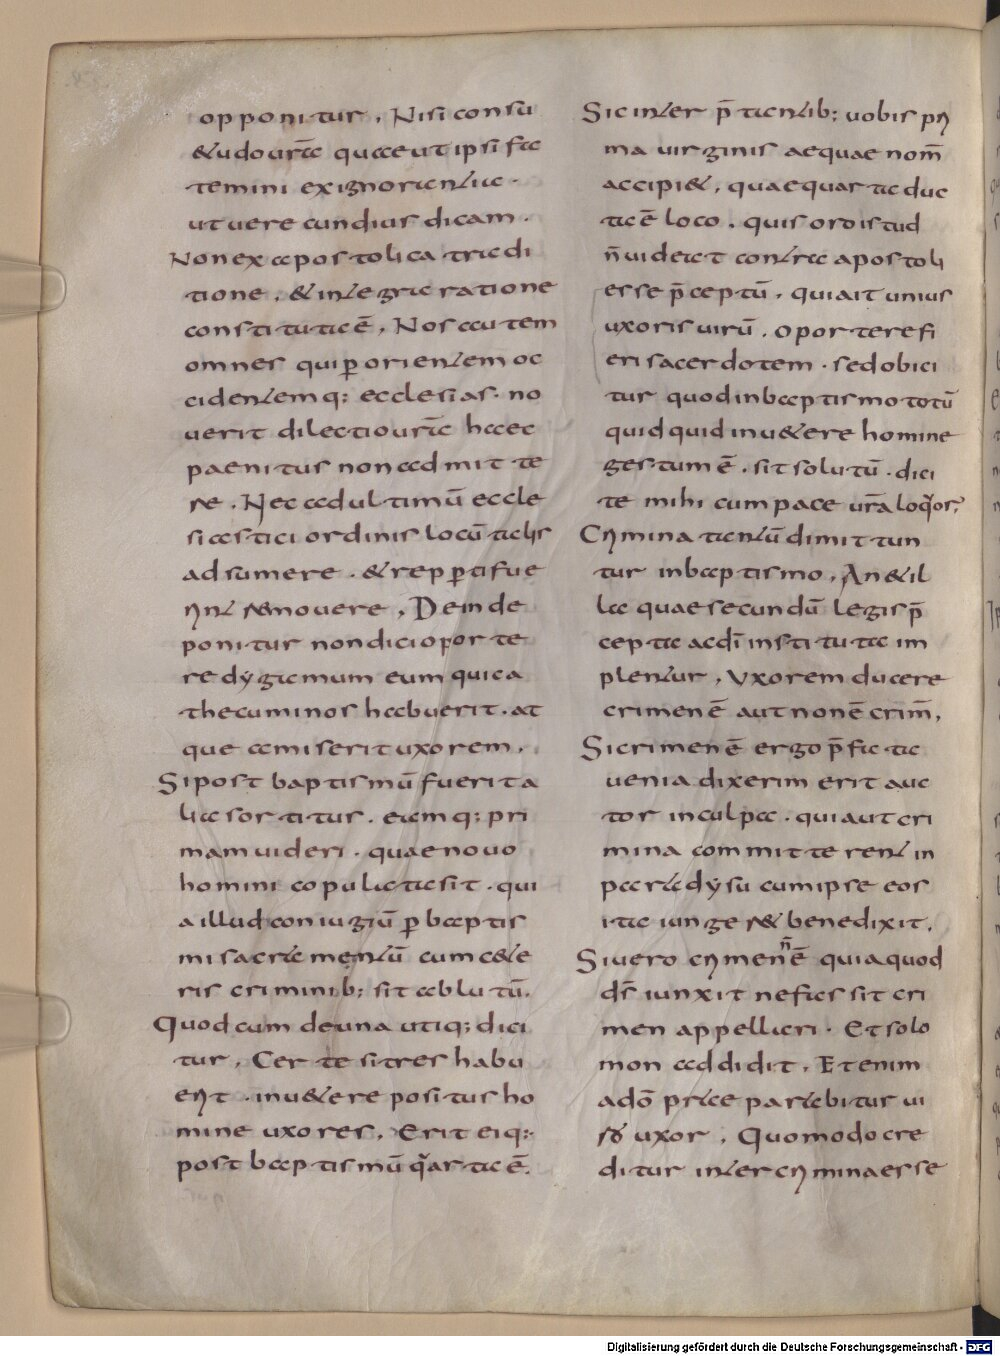 opponitur. Nisi consu
&udo ur̅a quae ut ipsi fa
temini ex ignorantia.
ut uere cundius dicam.
Non ex apostolica tradi
tione. & integra ratione
constituta ē. Nos autem
omnes qui p̱ orientem oc
cidentemq; ecclesias. no
uerit dilectio ur̅a haec
paenitus non admitte
re. Nec ad ultimū eccle
siastici ordinis locū talis
adsumere. & repperti fue
rint remouere. Deinde
ponitur non dici oporte
re dygamum eum qui ca
thecuminos habuerit. at
que amiserit uxorem.
Si post baptismū fuerit a
lia sortitur. eamq; pri
mam uideri. quae nouo
homini copulata sit. qui
a illud coniugiū p̱ baptis
mi sacramentū cum c&e
ris criminib; sit ablutū.
Quod cum de una utiq; dici
tur. Certe si tres habu
erit. in u&ere positus ho
mine uxores. Erit eiq:
post baptismū quarta ē.
Sic inter p̄ tantib; uobis pri
ma uirginis aequae nom̄
accipi&. quae quarta duc
ta ē loco. quis oro istud
n̄ uideat contra apostoli
esse p̄ceptū. qui ait unius
uxoris uirū. oportere fi
eri sacerdotem. sed obici
tur quod in baptismo totū
quidquid in u&ere homine
gestum ē. sit solutū. dici
te mihi cum pace ur̅a loqor;
Crimina tantū dimittun
tur in baptismo. An & il
la quae secundū legis p̄
cepta ac dī instituta im
plentur. Uxorem ducere
crimen ē aut non ē crim̄.
Si crimen ē ergo p̄fata
uenia dixerim erit auc
tor in culpa. qui aut cri
mina committerent in
paradysu cum ipse eos
ita iunger& benedixit.
Si uero crimen n̄ ē quia quod
ds̄ iunxit nefas sit cri
men appellari. Et solo
mon addidit. Etenim
a dō praeparabitur ui
ro uxor. Quomodo cre
ditur inter crimina esse
Digitalisierung gefördert durch die Deutsche Forschungsgemeinschaft - DFG